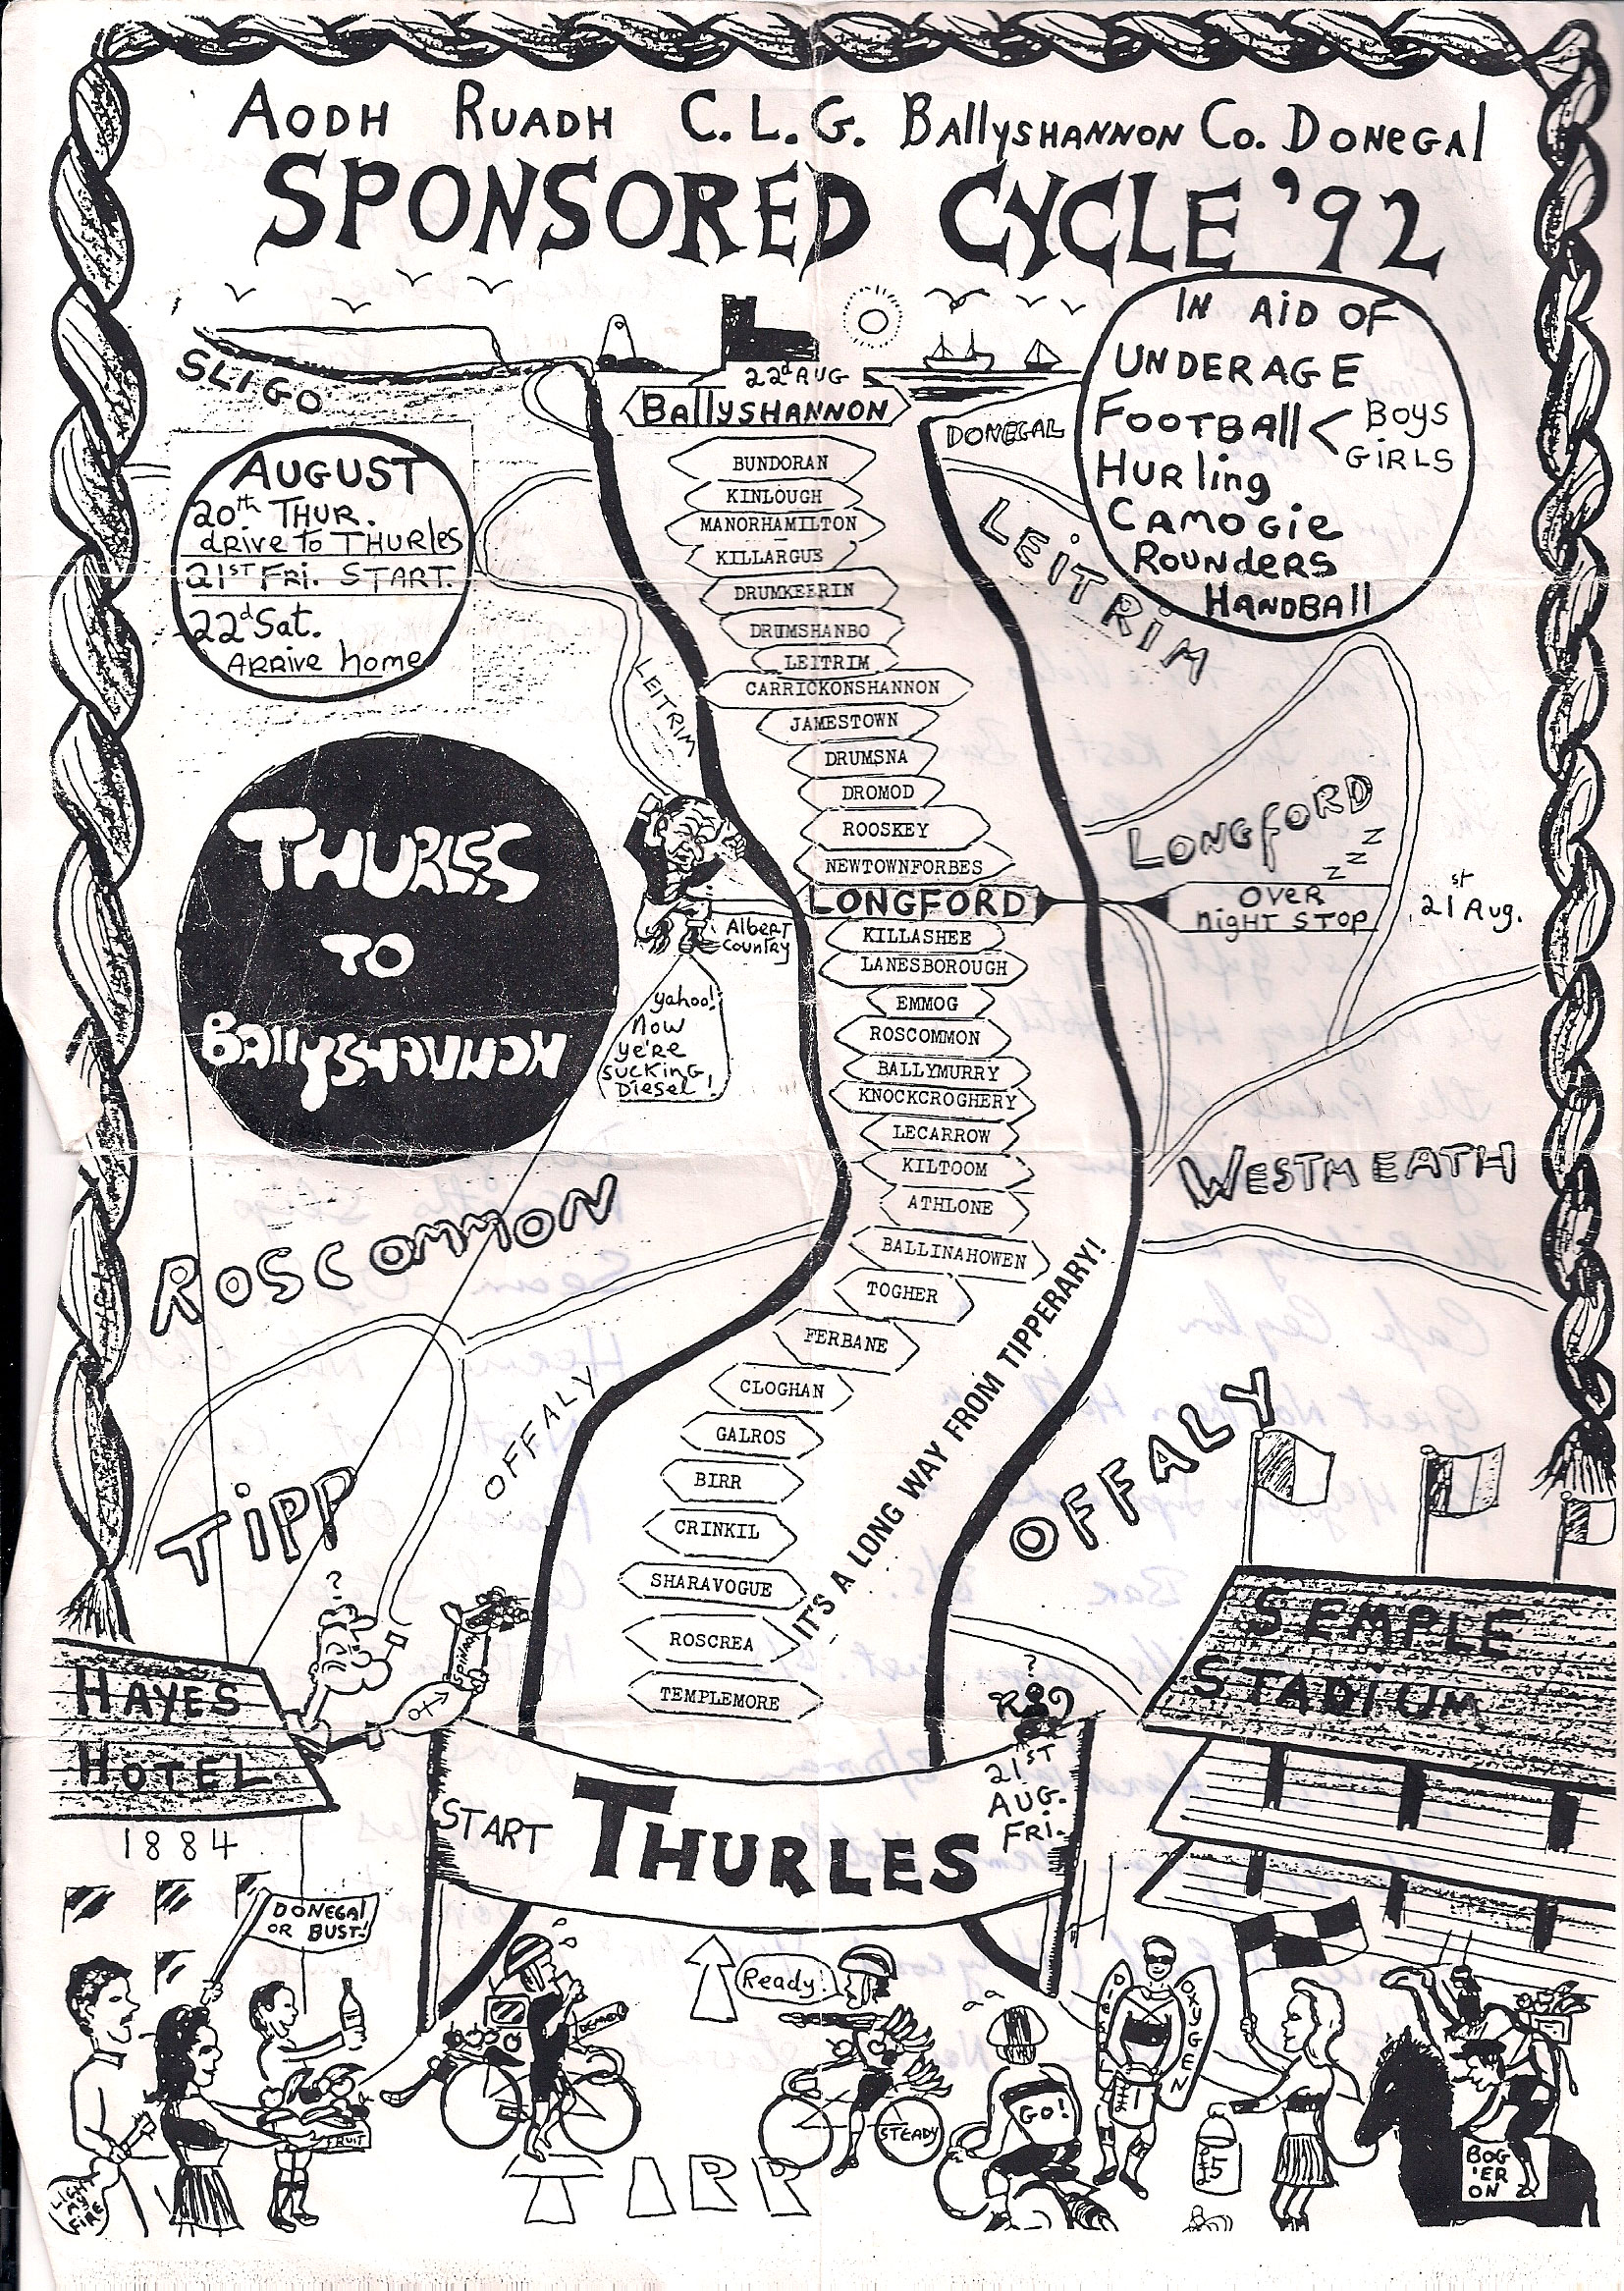 AODH RUADH C.L.G. BALLYSHANNON CO. DONEGAL
SPONSORED CYCLE '92
IN AID OF
UNDERAGE
FOOTBALL < BOYS
GIRLS
HURLING
CAMOGIE
ROUNDERS
HANDBALL
SLIGO
22d AUG
BALLYSHANNON
DONEGAL
LEITRIM
AUGUST
20th THUR.
DRIVE to THURLES
21ST FRI. START.
22d Sat.
ARRIVE home
BUNDORAN
KINLOUGH
MANORHAMILTON
KILLARGUE
DRUMKEERIN
DRUMSHANBO
LEITRIM
CARRICKONSHANNON
JAMESTOWN
DRUMSNA
DROMOD
ROOSKEY
NEWTOWNFORBES
LONGFORD
LEITRIM
LONGFORD
Z Z Z
OVER
NIGHT STOP
21st Aug.
THURLES
TO
BALLYSHANNON
Albert
Country
yahoo!
Now
ye're
sucking
Diesel!
KILLASHEE
LANESBOROUGH
EMMOG
ROSCOMMON
BALLYMURRY
KNOCKCROGHERY
LECARROW
KILTOOM
ATHLONE
BALLINAHOWEN
TOGHER
FERBANE
CLOGHAN
GALROS
BIRR
CRINKIL
SHARAVOGUE
ROSCREA
TEMPLEMORE
WESTMEATH
ROSCOMMON
IT'S A LONG WAY FROM TIPPERARY!
OFFALY
OFFALY
TIPP
?
SPINACH
?
HAYES
HOTEL
1884
SEMPLE
STADIUM
START
THURLES
21ST
AUG.
FRI.
DONEGAL
OR BUST!
Ready!
STEADY
GO!
OXYGEN
£5
BOG
'ER
ON
FRUIT
LIGHT
MY
FIRE
TIPP